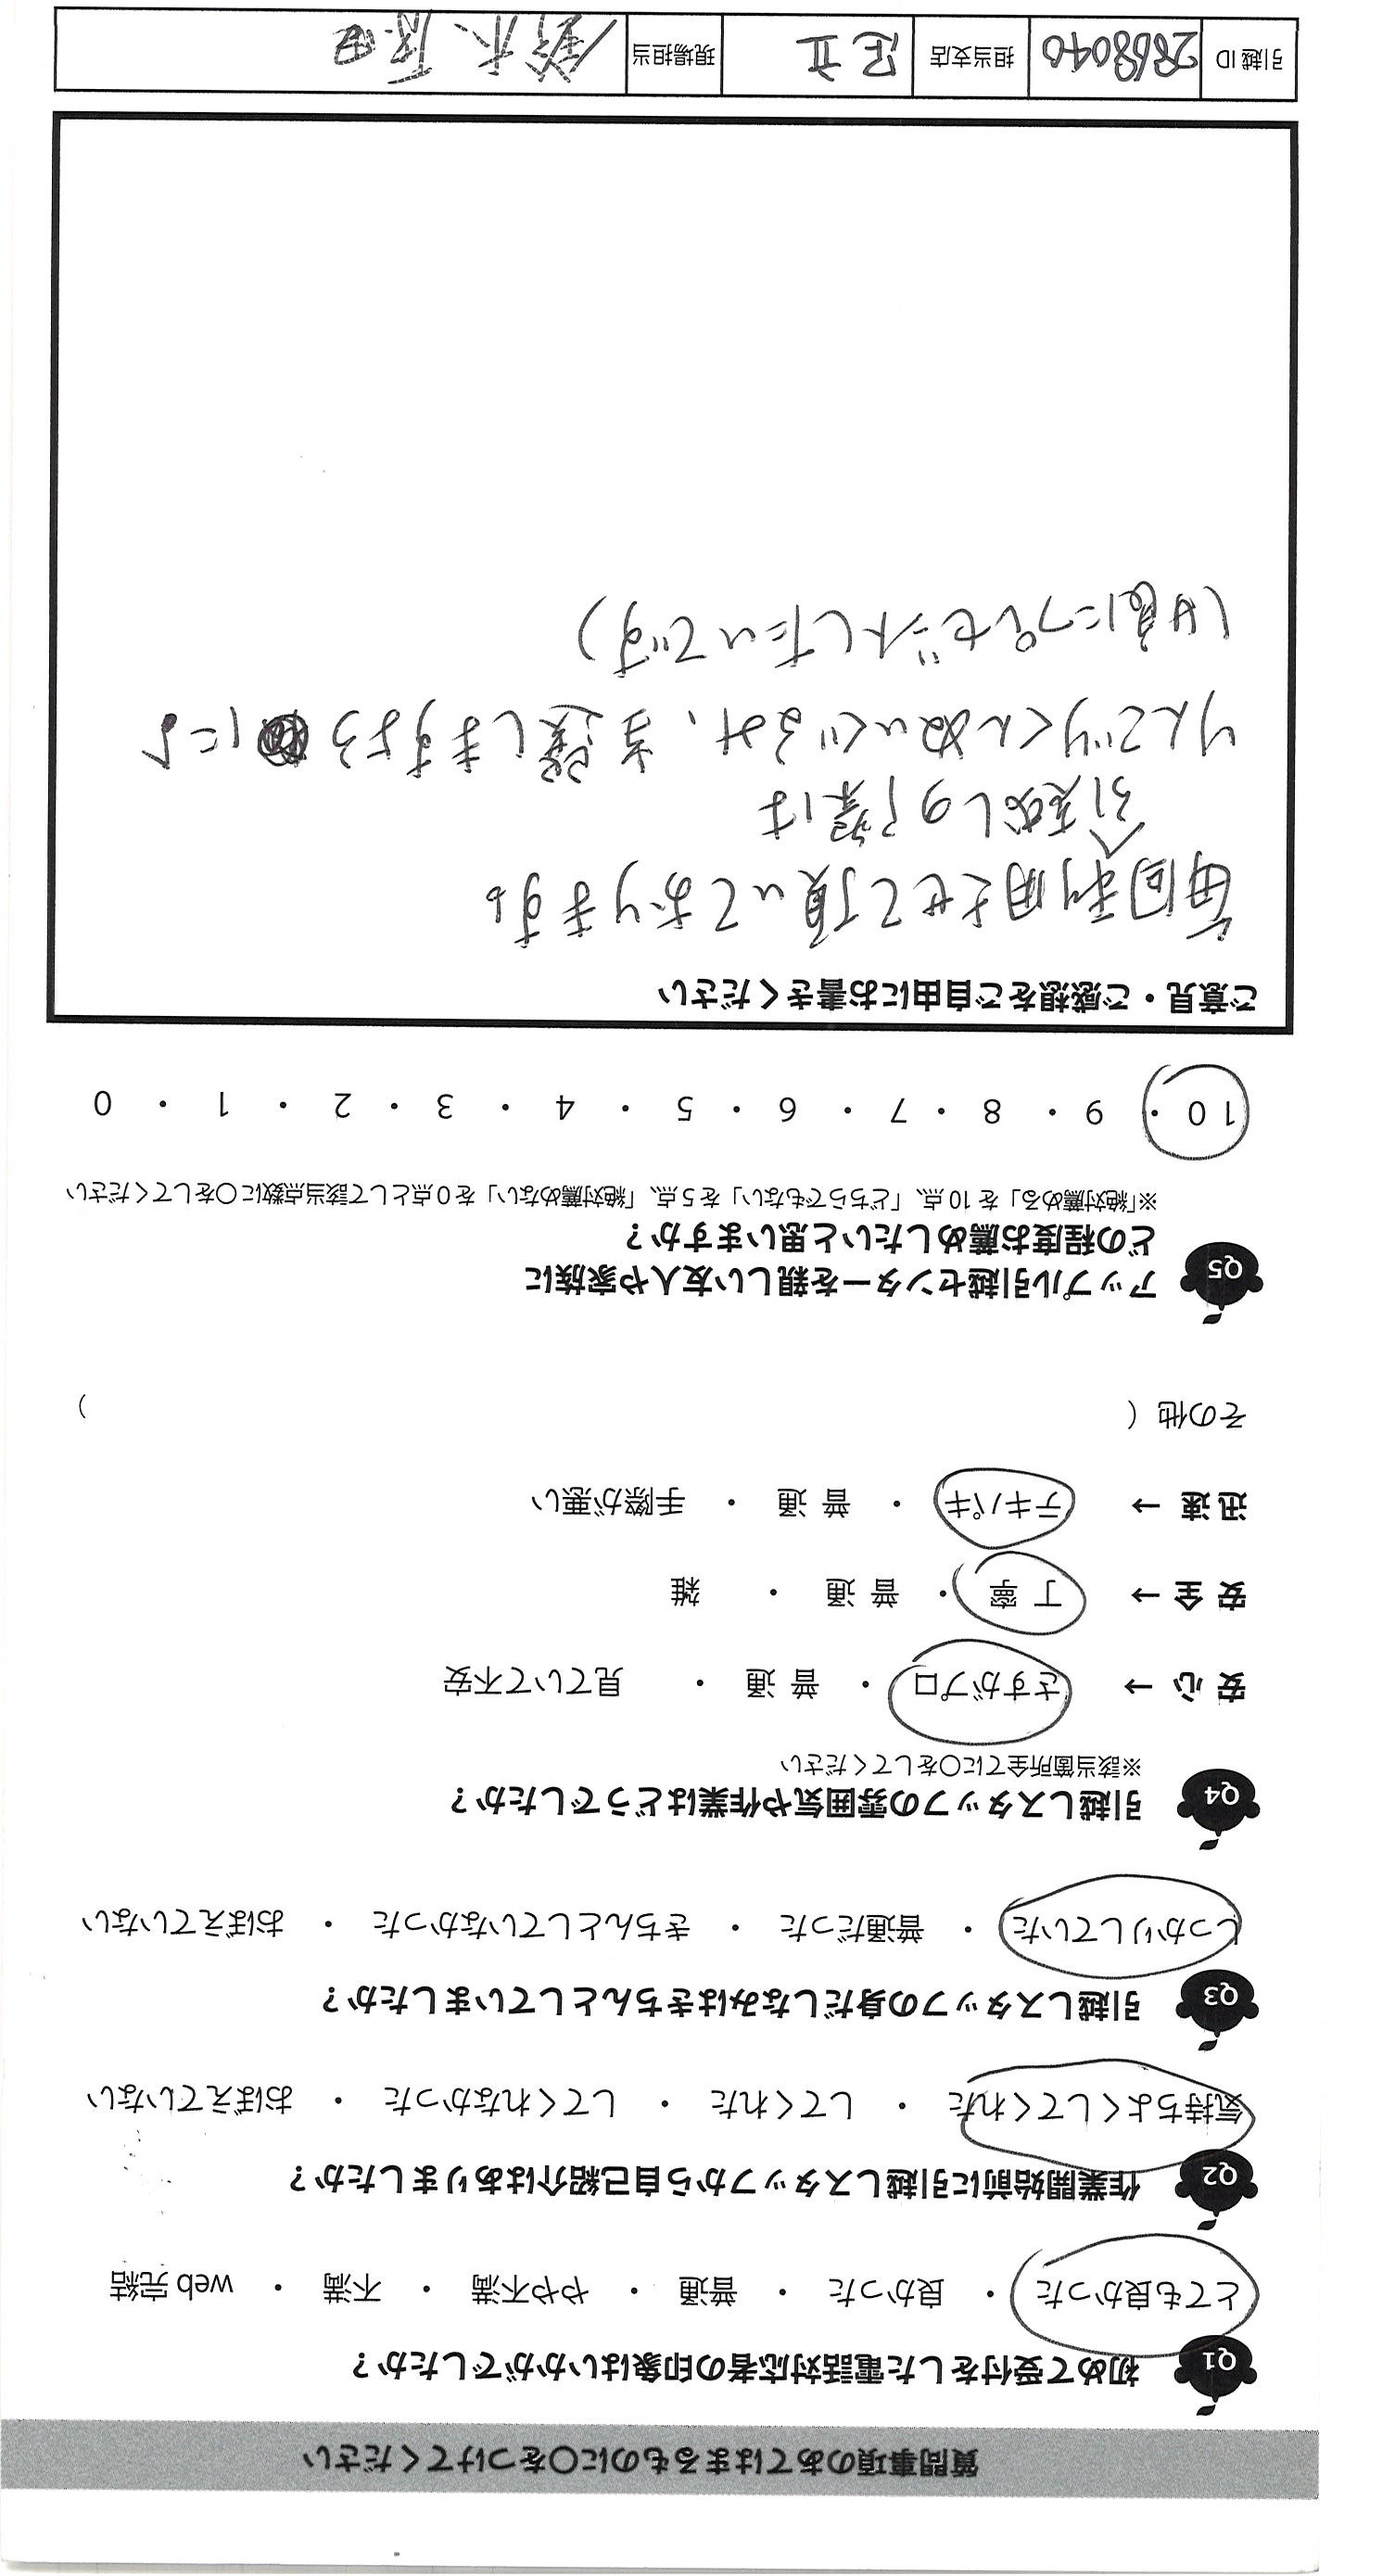 質問事項のあてはまるものに○をつけてください
Q1 初めて受付をした電話対応者の印象はいかがでしたか？
とても良かった ・ 良かった ・ 普通 ・ やや不満 ・ 不満 ・ web 完結
Q2 作業開始前に引越しスタッフから自己紹介はありましたか？
気持ちよくしてくれた ・ してくれた ・ してくれなかった ・ おぼえていない
Q3 引越しスタッフの身だしなみはきちんとしていましたか？
しっかりしていた ・ 普通だった ・ きちんとしていなかった ・ おぼえていない
Q4 引越しスタッフの雰囲気や作業はどうでしたか？
※該当箇所全てに○をしてください
安 心 → さすがプロ ・ 普 通 ・ 見ていて不安
安 全 → 丁 寧 ・ 普 通 ・ 雑
迅 速 → テキパキ ・ 普 通 ・ 手際が悪い
その他 （ ）
Q5 アップル引越センターを親しい友人や家族に
どの程度お薦めしたいと思いますか？
※「絶対薦める」を 10 点、「どちらでもない」を 5 点、「絶対薦めない」を 0 点として該当点数に○をしてください
10 ・ 9 ・ 8 ・ 7 ・ 6 ・ 5 ・ 4 ・ 3 ・ 2 ・ 1 ・ 0
ご意見・ご感想をご自由にお書きください
毎回利用させて頂いております。
引越しの際は
りんごりくんぬいぐるみ、当選しますように♪
(娘にプレゼントしたいです)
引越 ID 2868040 担当支店 足立 現場担当 鈴木、原田